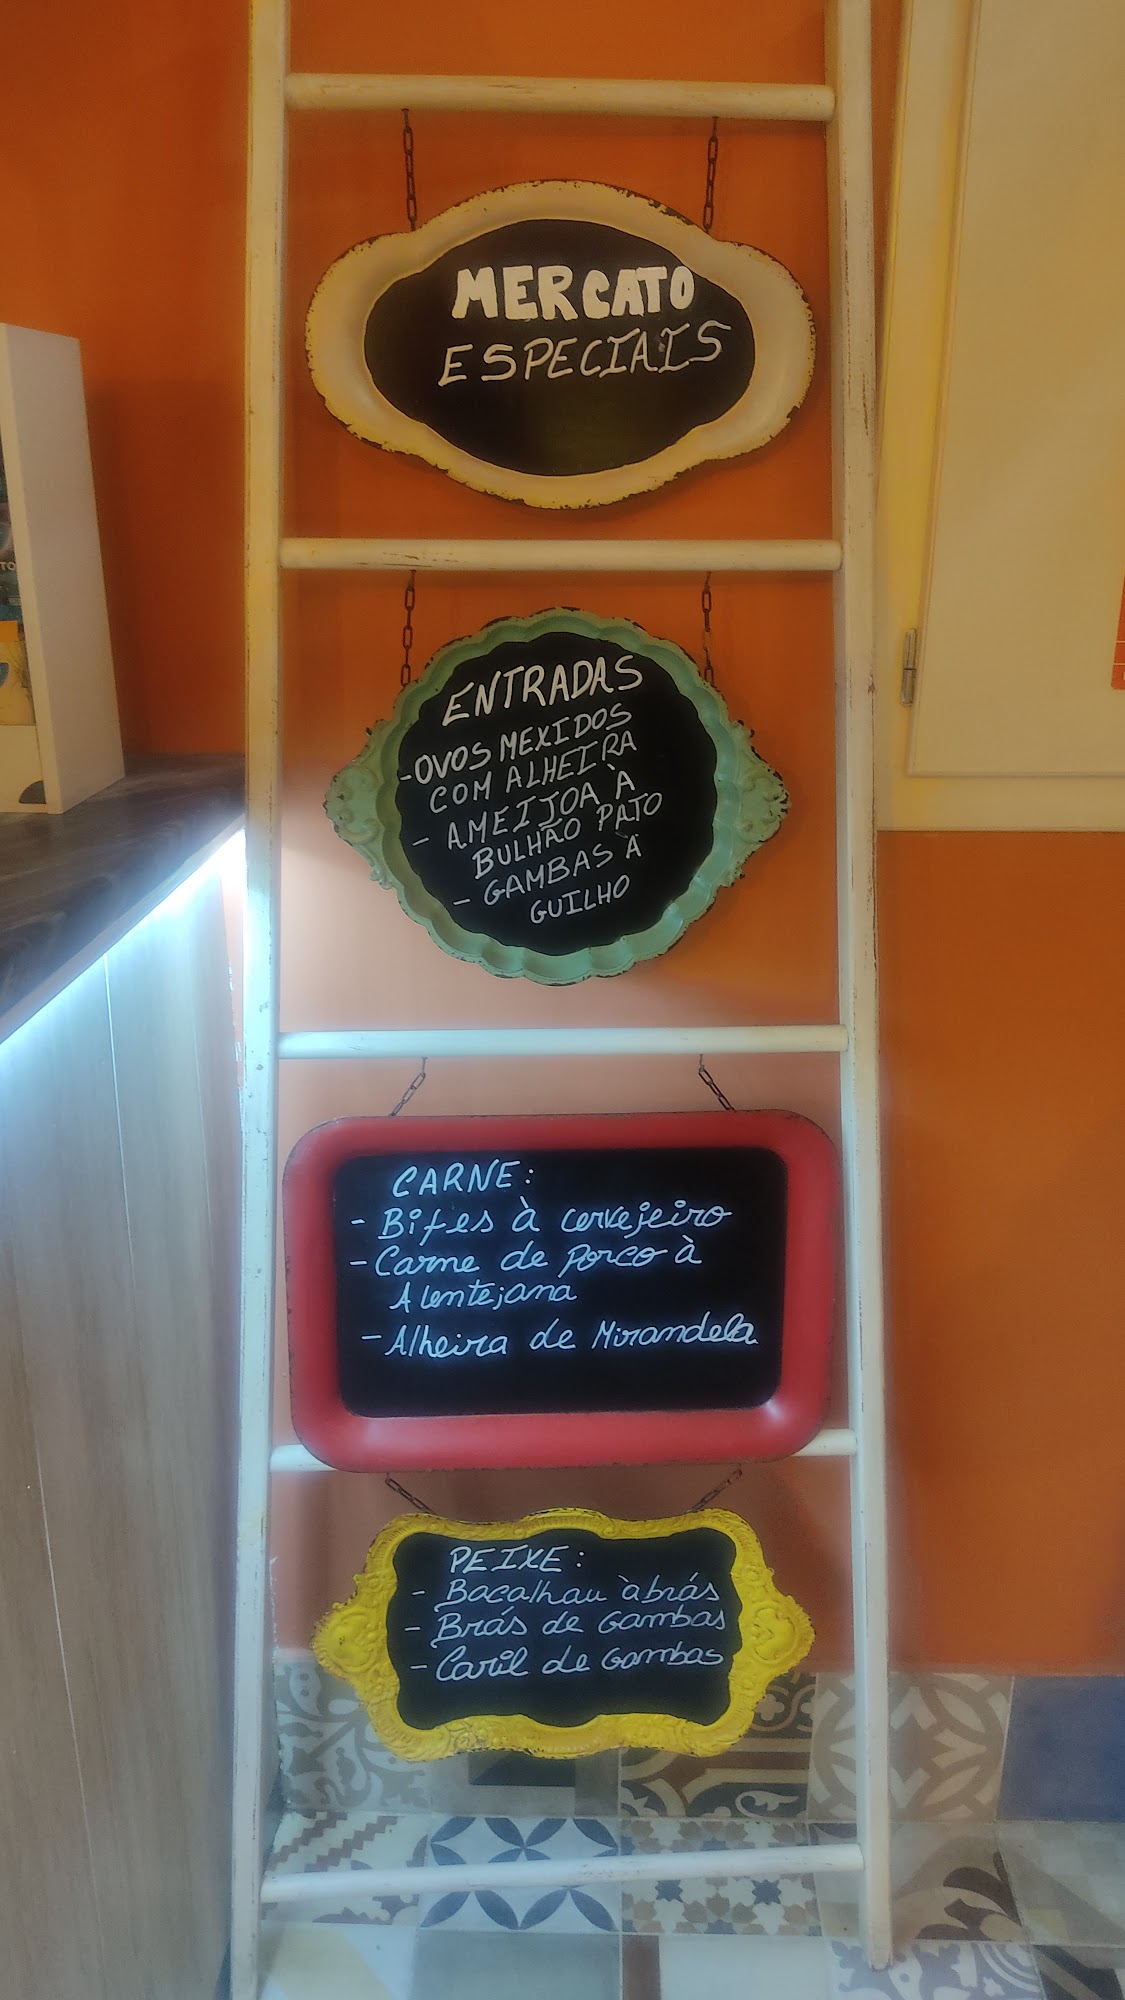 MERCATO
ESPECIAIS
ENTRADAS
-OVOS MEXIDOS
COM ALHEIRA
- AMEIJOA À
BULHÃO PATO
- GAMBAS À
GUILHO
CARNE:
- Bifes à cervejeiro
- Carne de Porco à
Alentejana
- Alheira de Mirandela
PEIXE:
- Bacalhau àbrás
- Brás de Gambas
- Caril de Gambas
TO